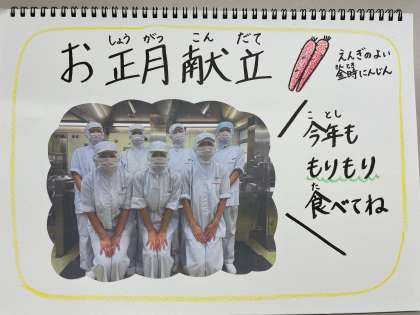 しょう がつ こん だて
お正月献立
えんぎのよい
きんとき
金時にんじん
ことし
今年も
もりもり
た
食べてね